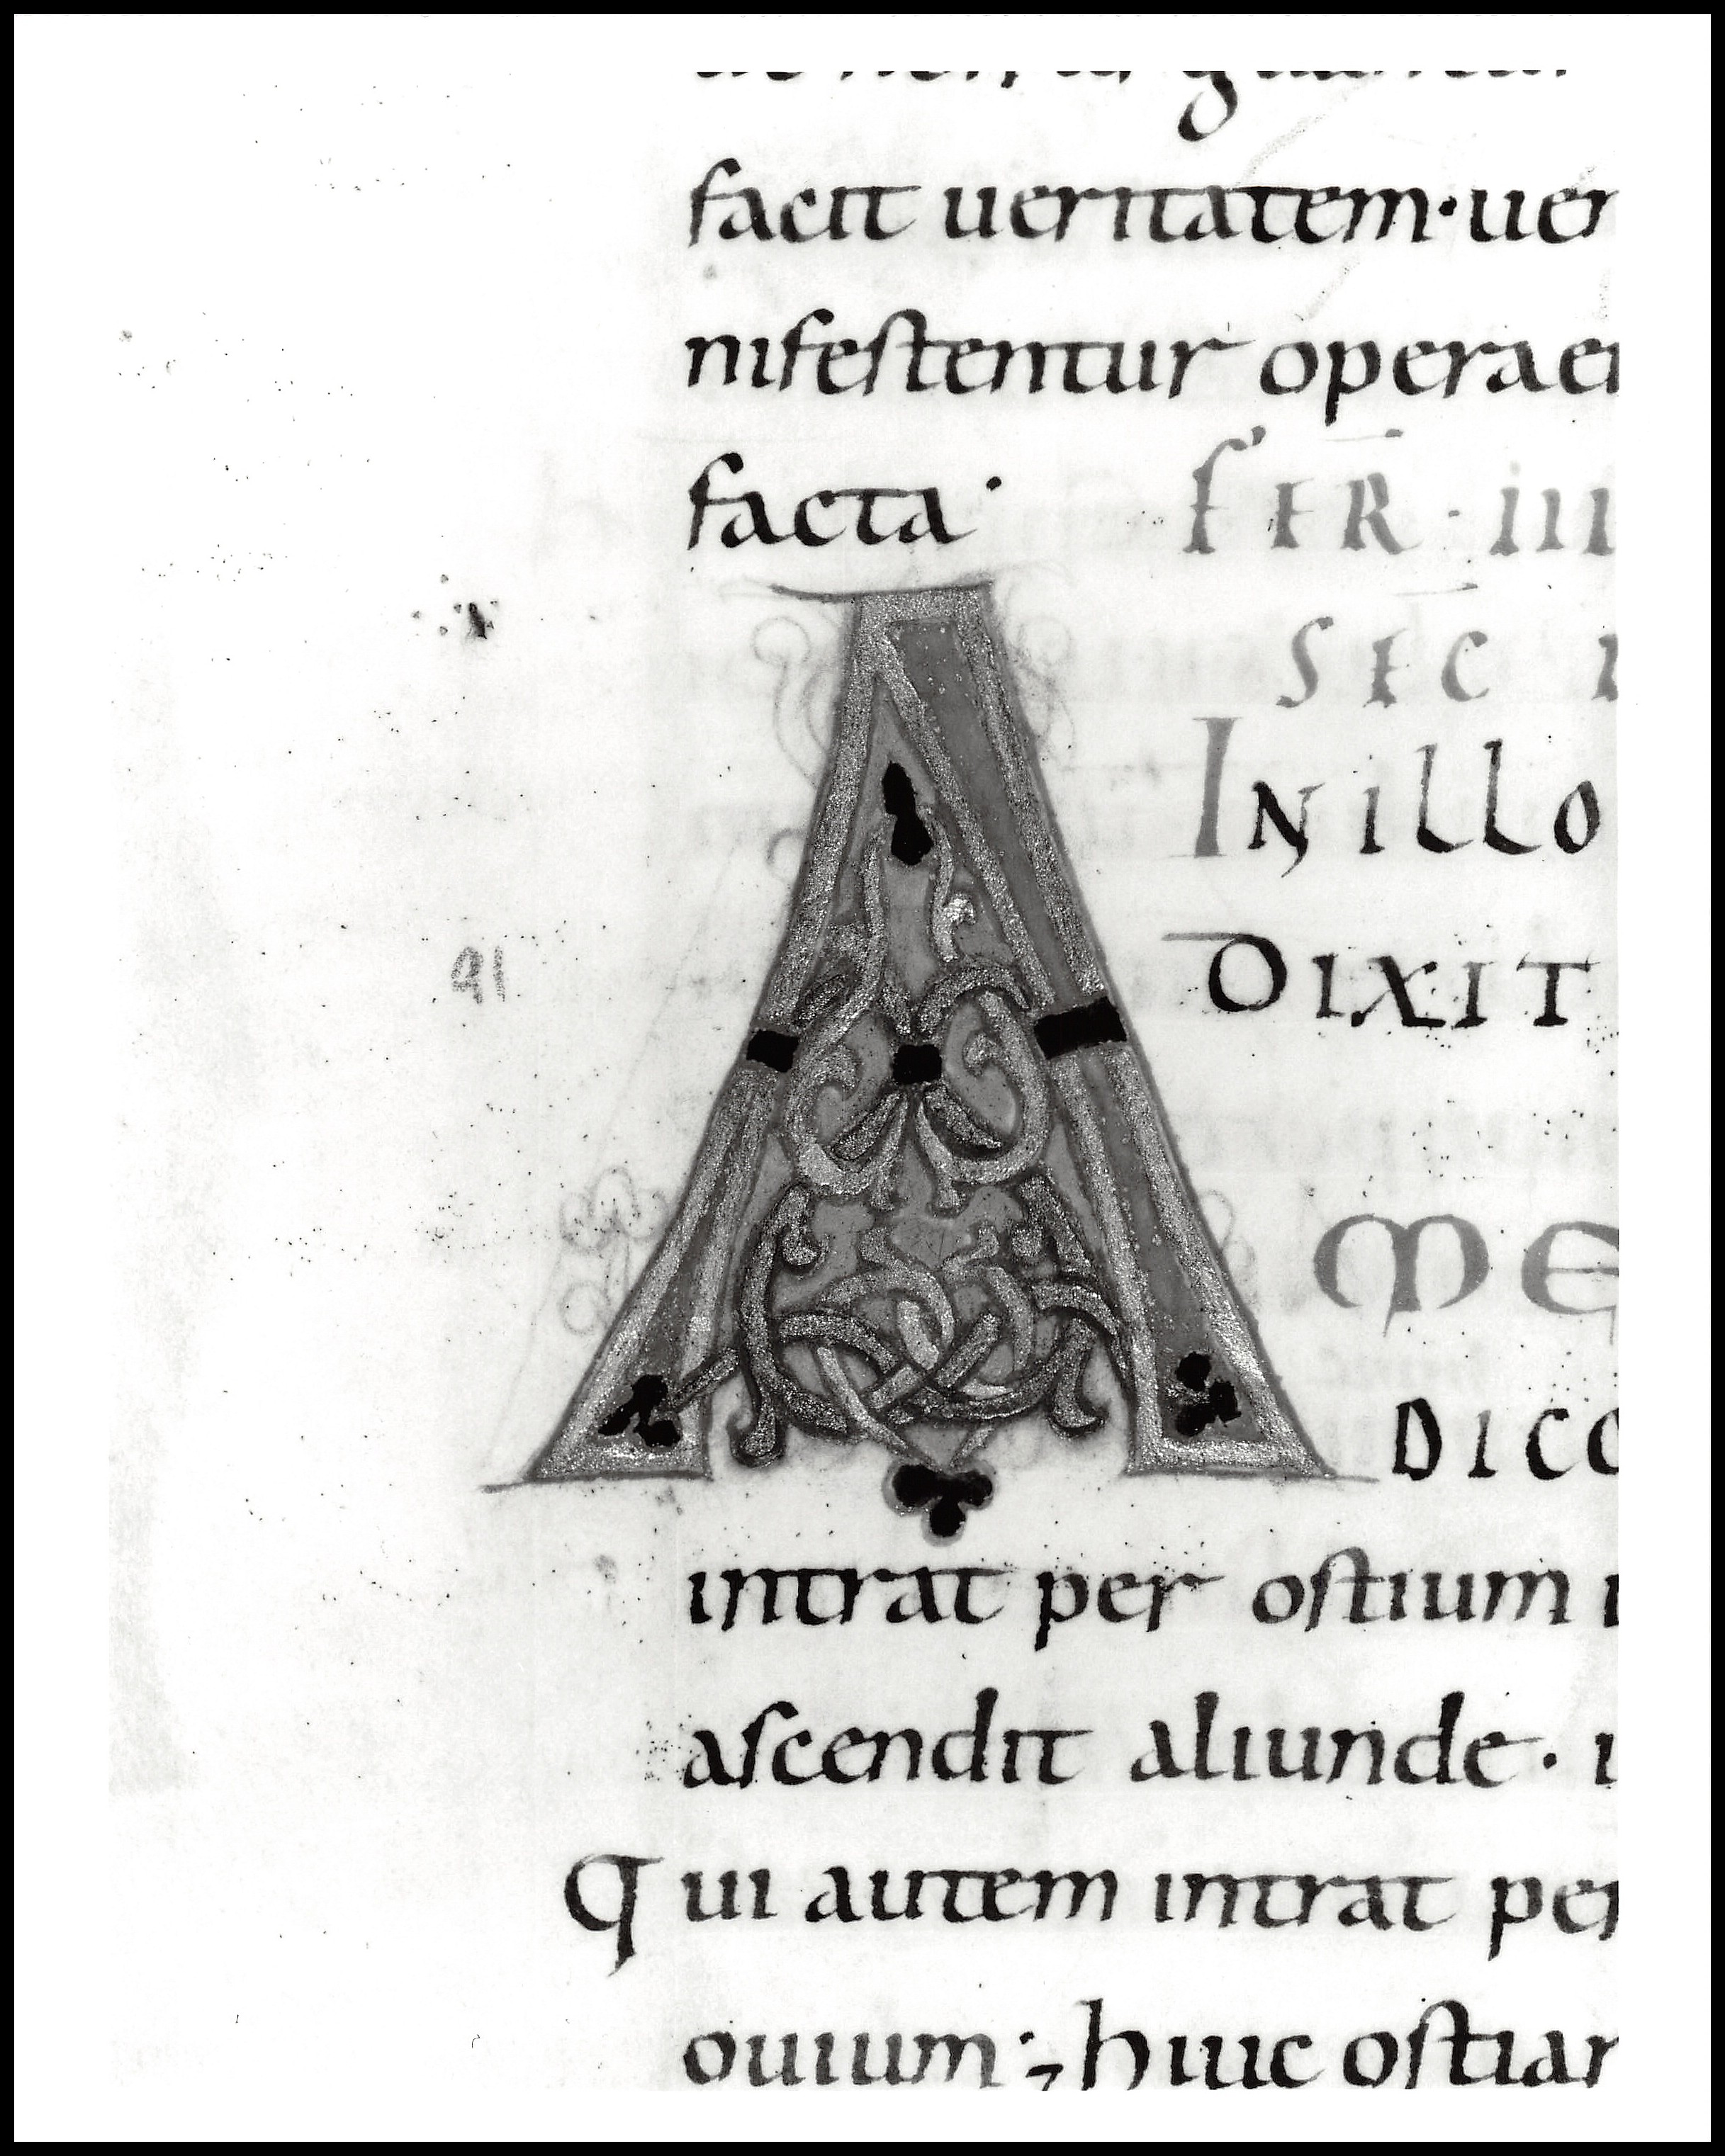 facit ueritatem· uer
nifestentur operaei
facta· FER· III
SEC
IN ILLO
DIXIT
A ME
DICO
intrat per ostium
ascendit aliunde·
Qui autem intrat per
ouium· huic ostiar
91